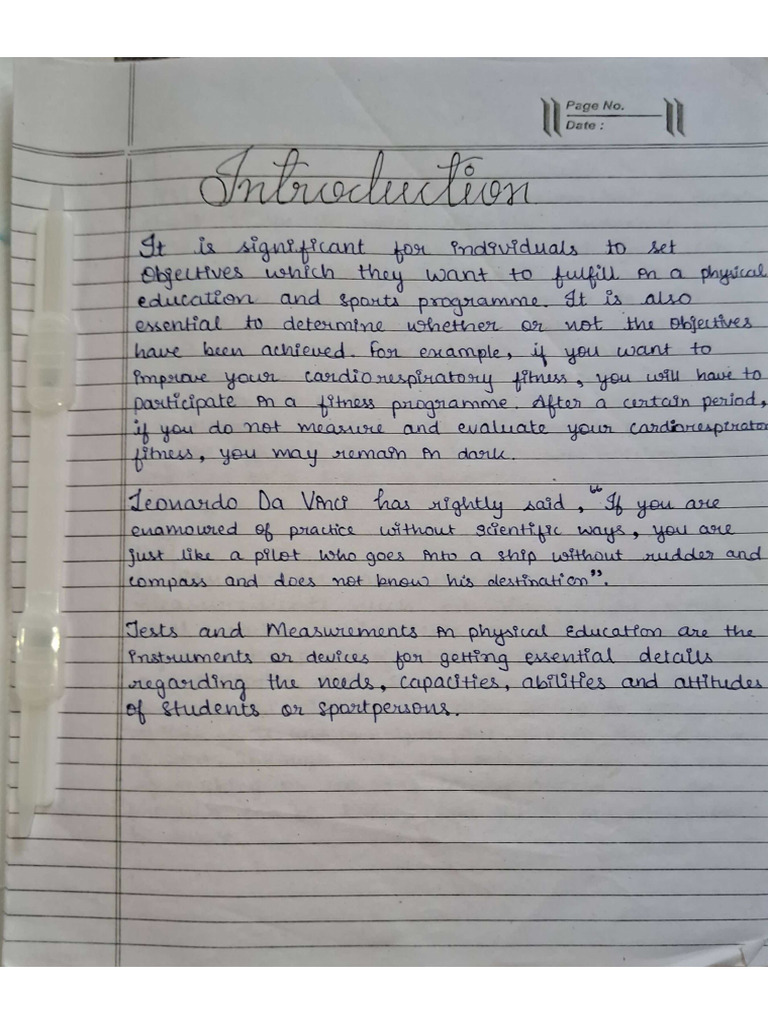 Page No.
Date :
Introduction
It is significant for individuals to set
objectives which they want to fulfill in a physical
education and sports programme. It is also
essential to determine whether or not the objectives
have been achieved. For example, if you want to
improve your cardiorespiratory fitness, you will have to
participate in a fitness programme. After a certain period,
if you do not measure and evaluate your cardiorespirator
fitness, you may remain in dark.
Leonardo Da Vinci has rightly said, "If you are
enamoured of practice without scientific ways, you are
just like a pilot who goes into a ship without rudder and
compass and does not know his destination".
Tests and Measurements in physical Education are the
instruments or devices for getting essential details
regarding the needs, capacities, abilities and attitudes
of students or sportpersons.